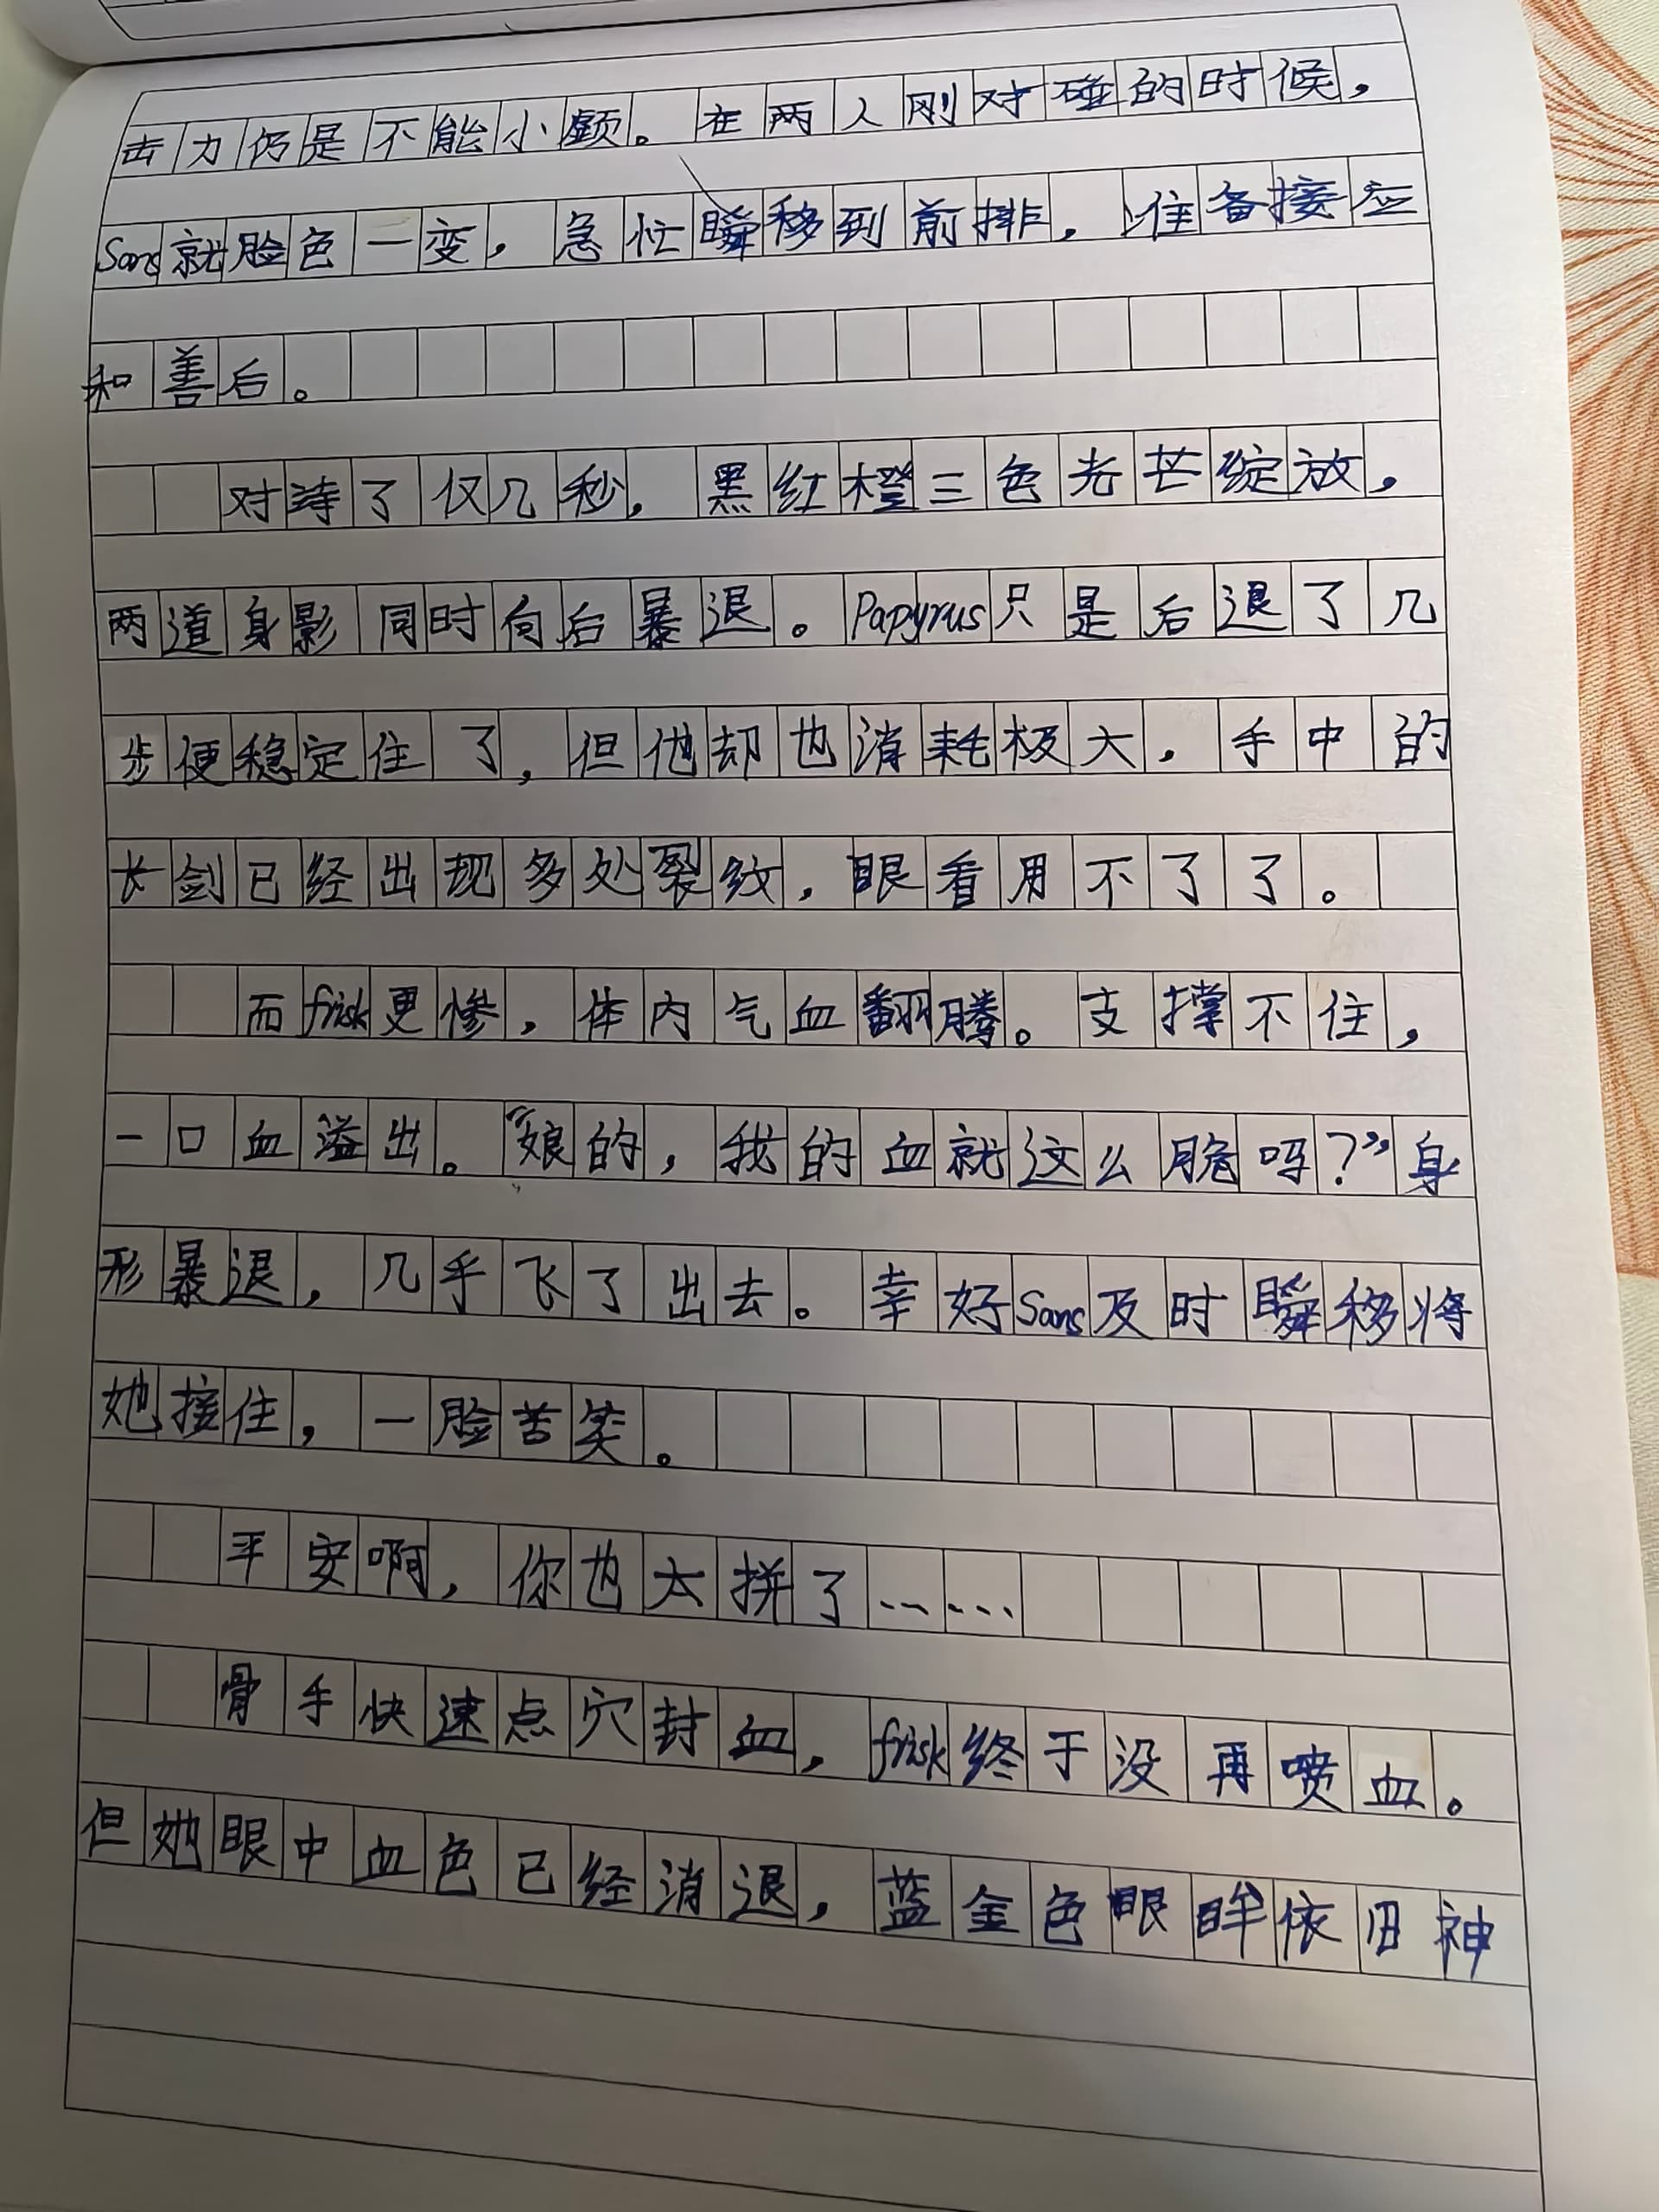 击力仍是不能小颧。在两人刚对碰的时候，
Sans就脸色一变，急忙瞬移到前排，准备接应
和善后。
对峙了仅几秒，黑红橙三色光芒绽放，
两道身影同时向后暴退。Papyrus只是后退了几
步便稳定住了，但他却也消耗极大，手中的
长剑已经出现多处裂纹，眼看用不了了。
而frisk更惨，体内气血翻腾。支撑不住，
一口血溢出。“娘的，我的血就这么脆吗？”身
形暴退，几乎飞了出去。幸好Sans及时瞬移将
她接住，一脸苦笑。
平安啊，你也太拼了……
骨手快速点穴封血，frisk终于没再喷血。
但她眼中血色已经消退，蓝金色眼眸依旧神